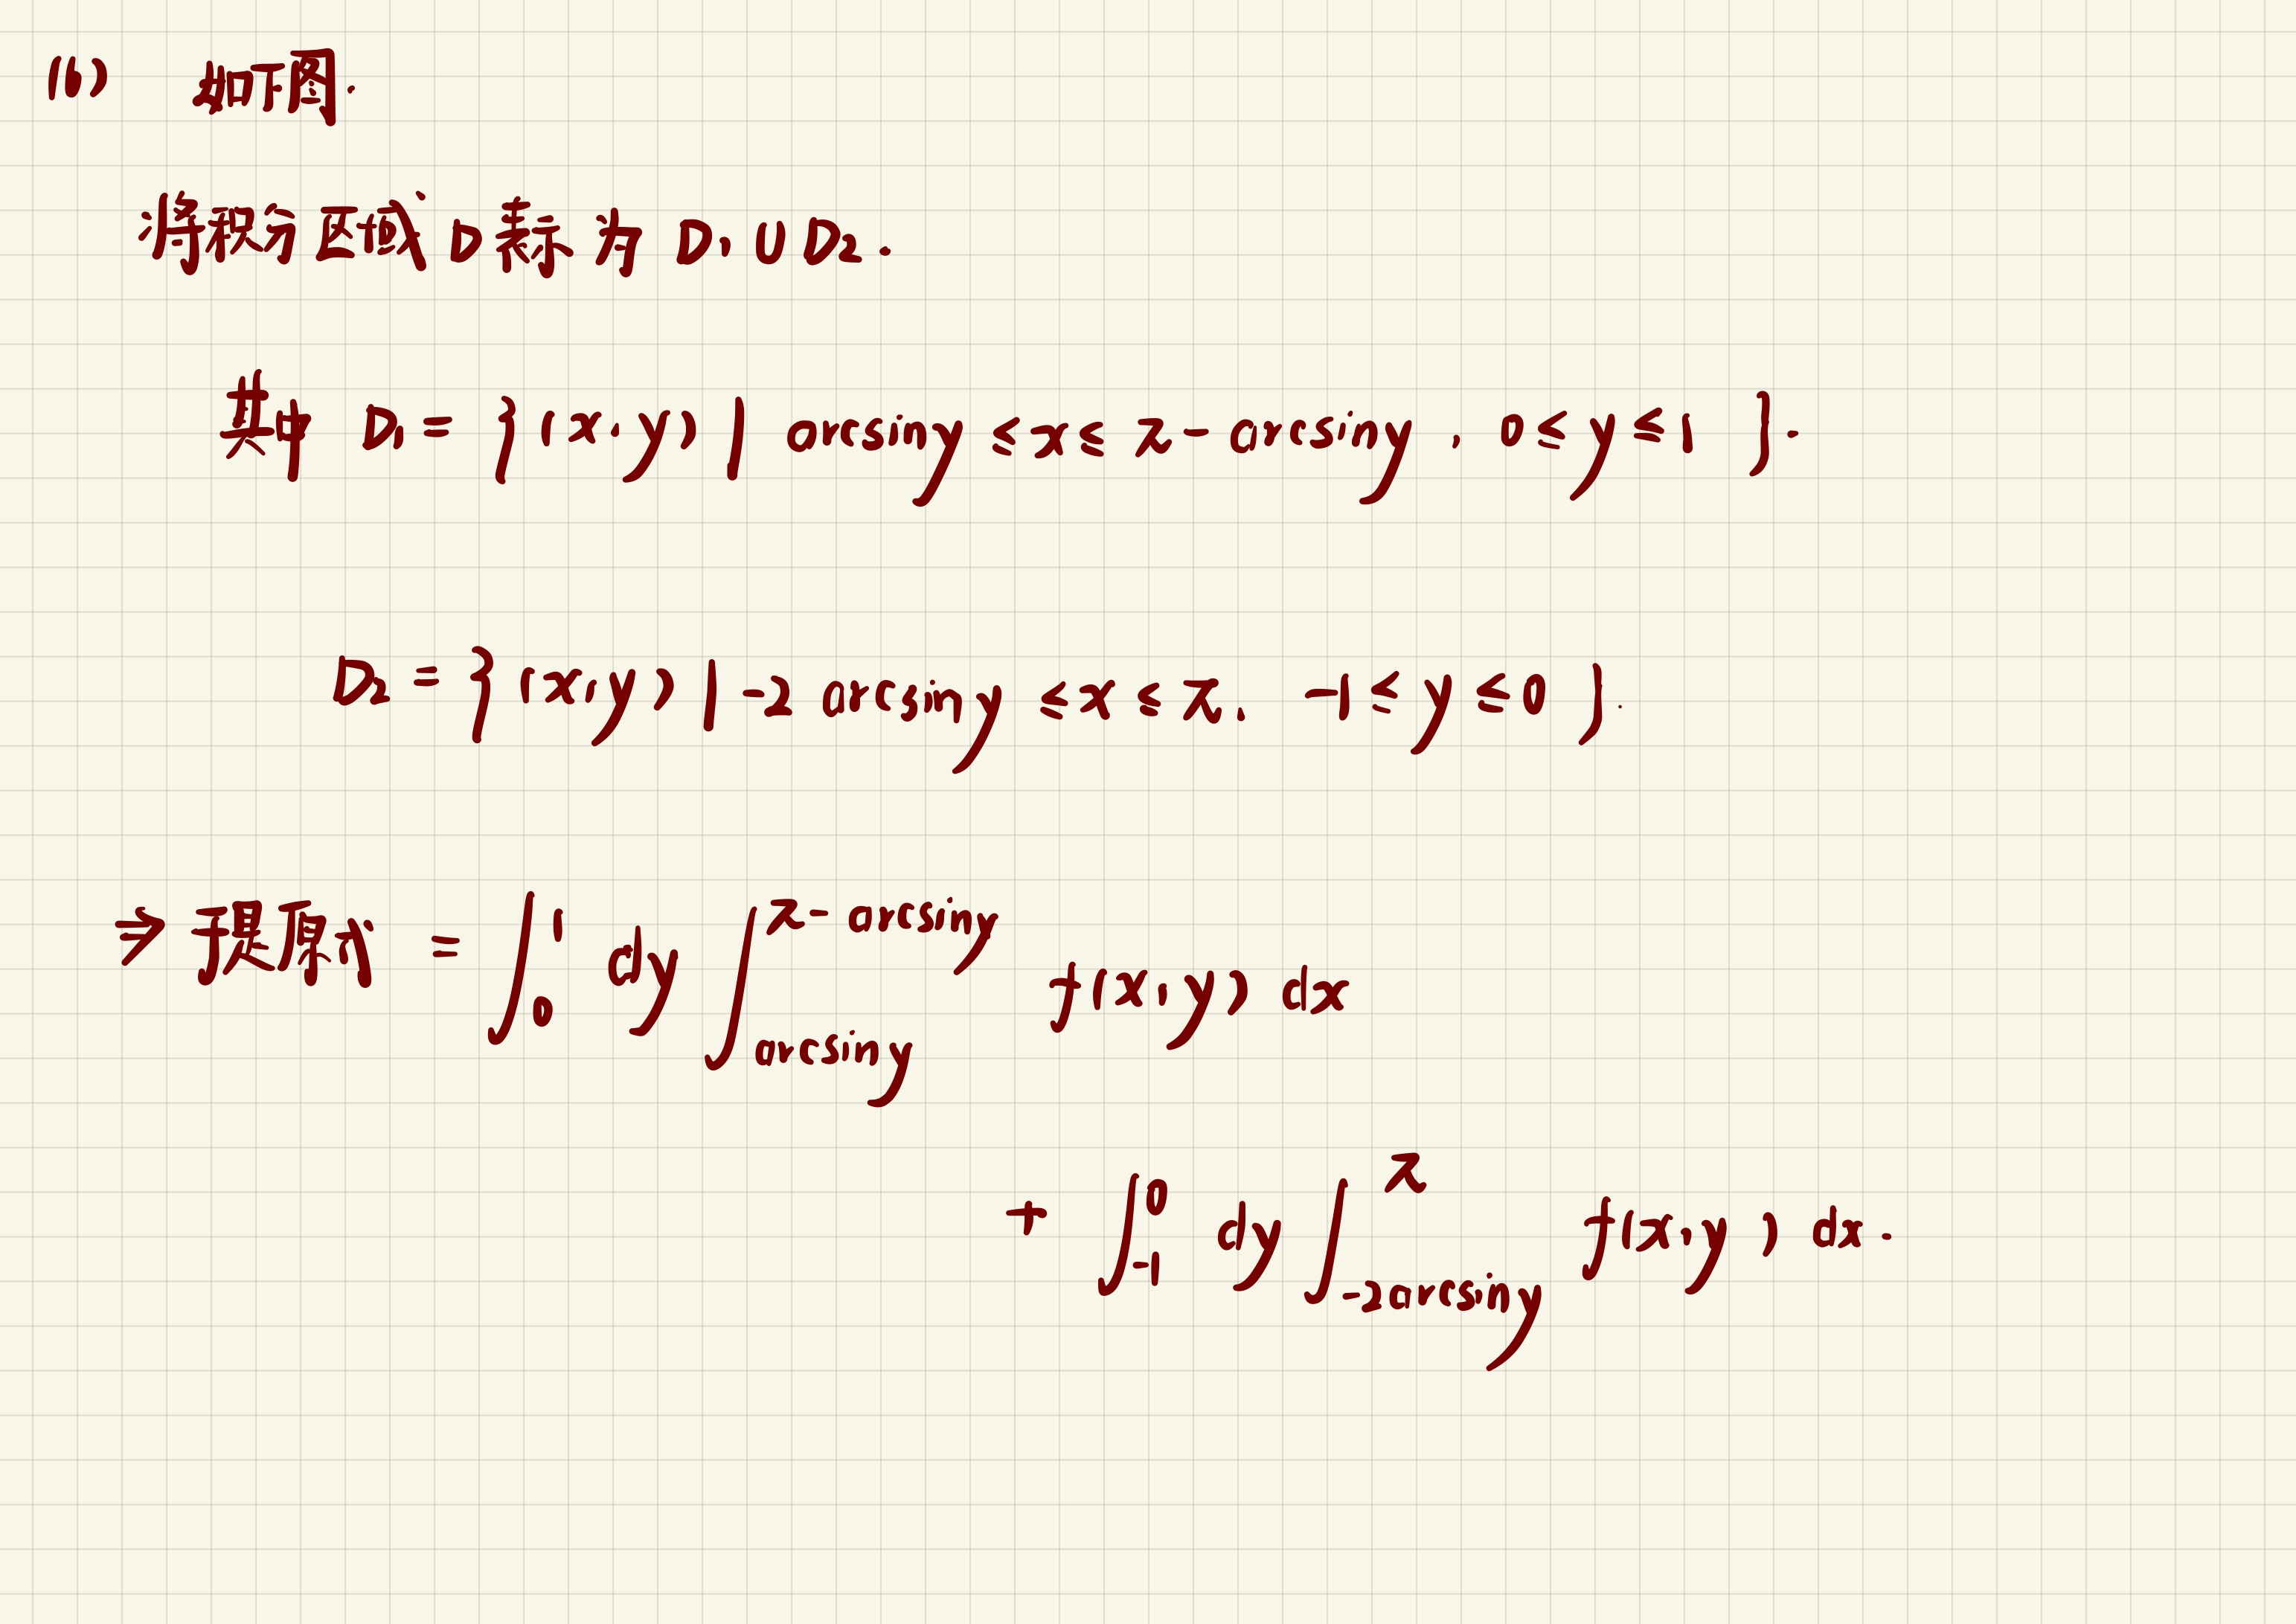 (6) 如下图.
将积分区域 D表示为 D₁∪D₂.
其中 D₁= {(x,y)| arcsiny ≤x≤ π-arcsiny, 0≤y≤1 }.
D₂ = {(x,y)|-2 arcsiny ≤x≤π, -1≤y≤0 }.
⇒ 于是原式 = ∫₀¹ dy ∫_{arcsiny}^{π-arcsiny} f(x,y) dx
+ ∫₋₁⁰ dy ∫_{-2arcsiny}^{π} f(x,y) dx.